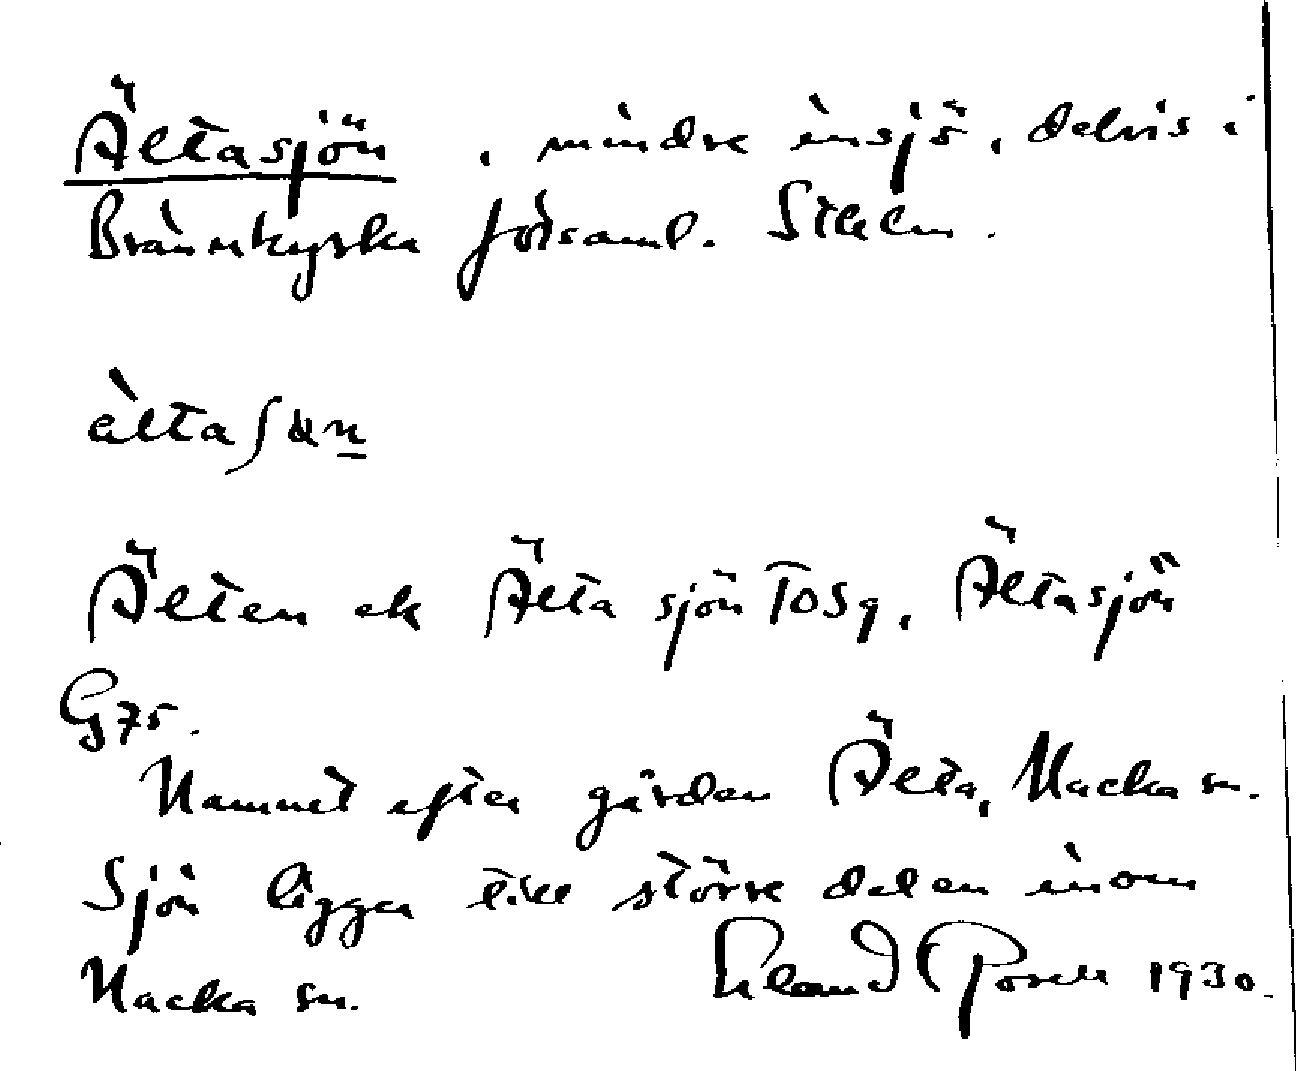 Ältasjön, mindre insjö, delvis i
Brännkyrka förs​aml. Sthlm.
älta∫ön
Älten ek Älta sjön TOSq, Ältasjön
G75.
Namnet efter gården Älta, Nacka sn.
Sjön ligger till större delen inom
Nacka sn. Erland Rosell 1930.